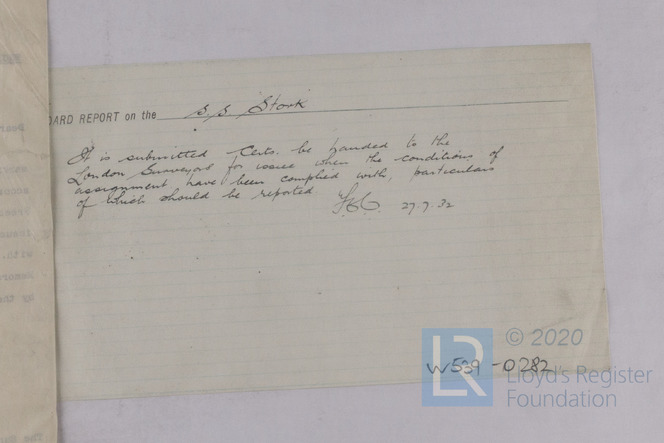 OARD REPORT on the S.S. Stork
It is submitted Certs. be handed to the
London Surveyors for issue when the conditions of
assignment have been complied with, particulars
of which should be reported
27.7.32
© 2020
LR
W539-0282
Lloyd's Register
Foundation